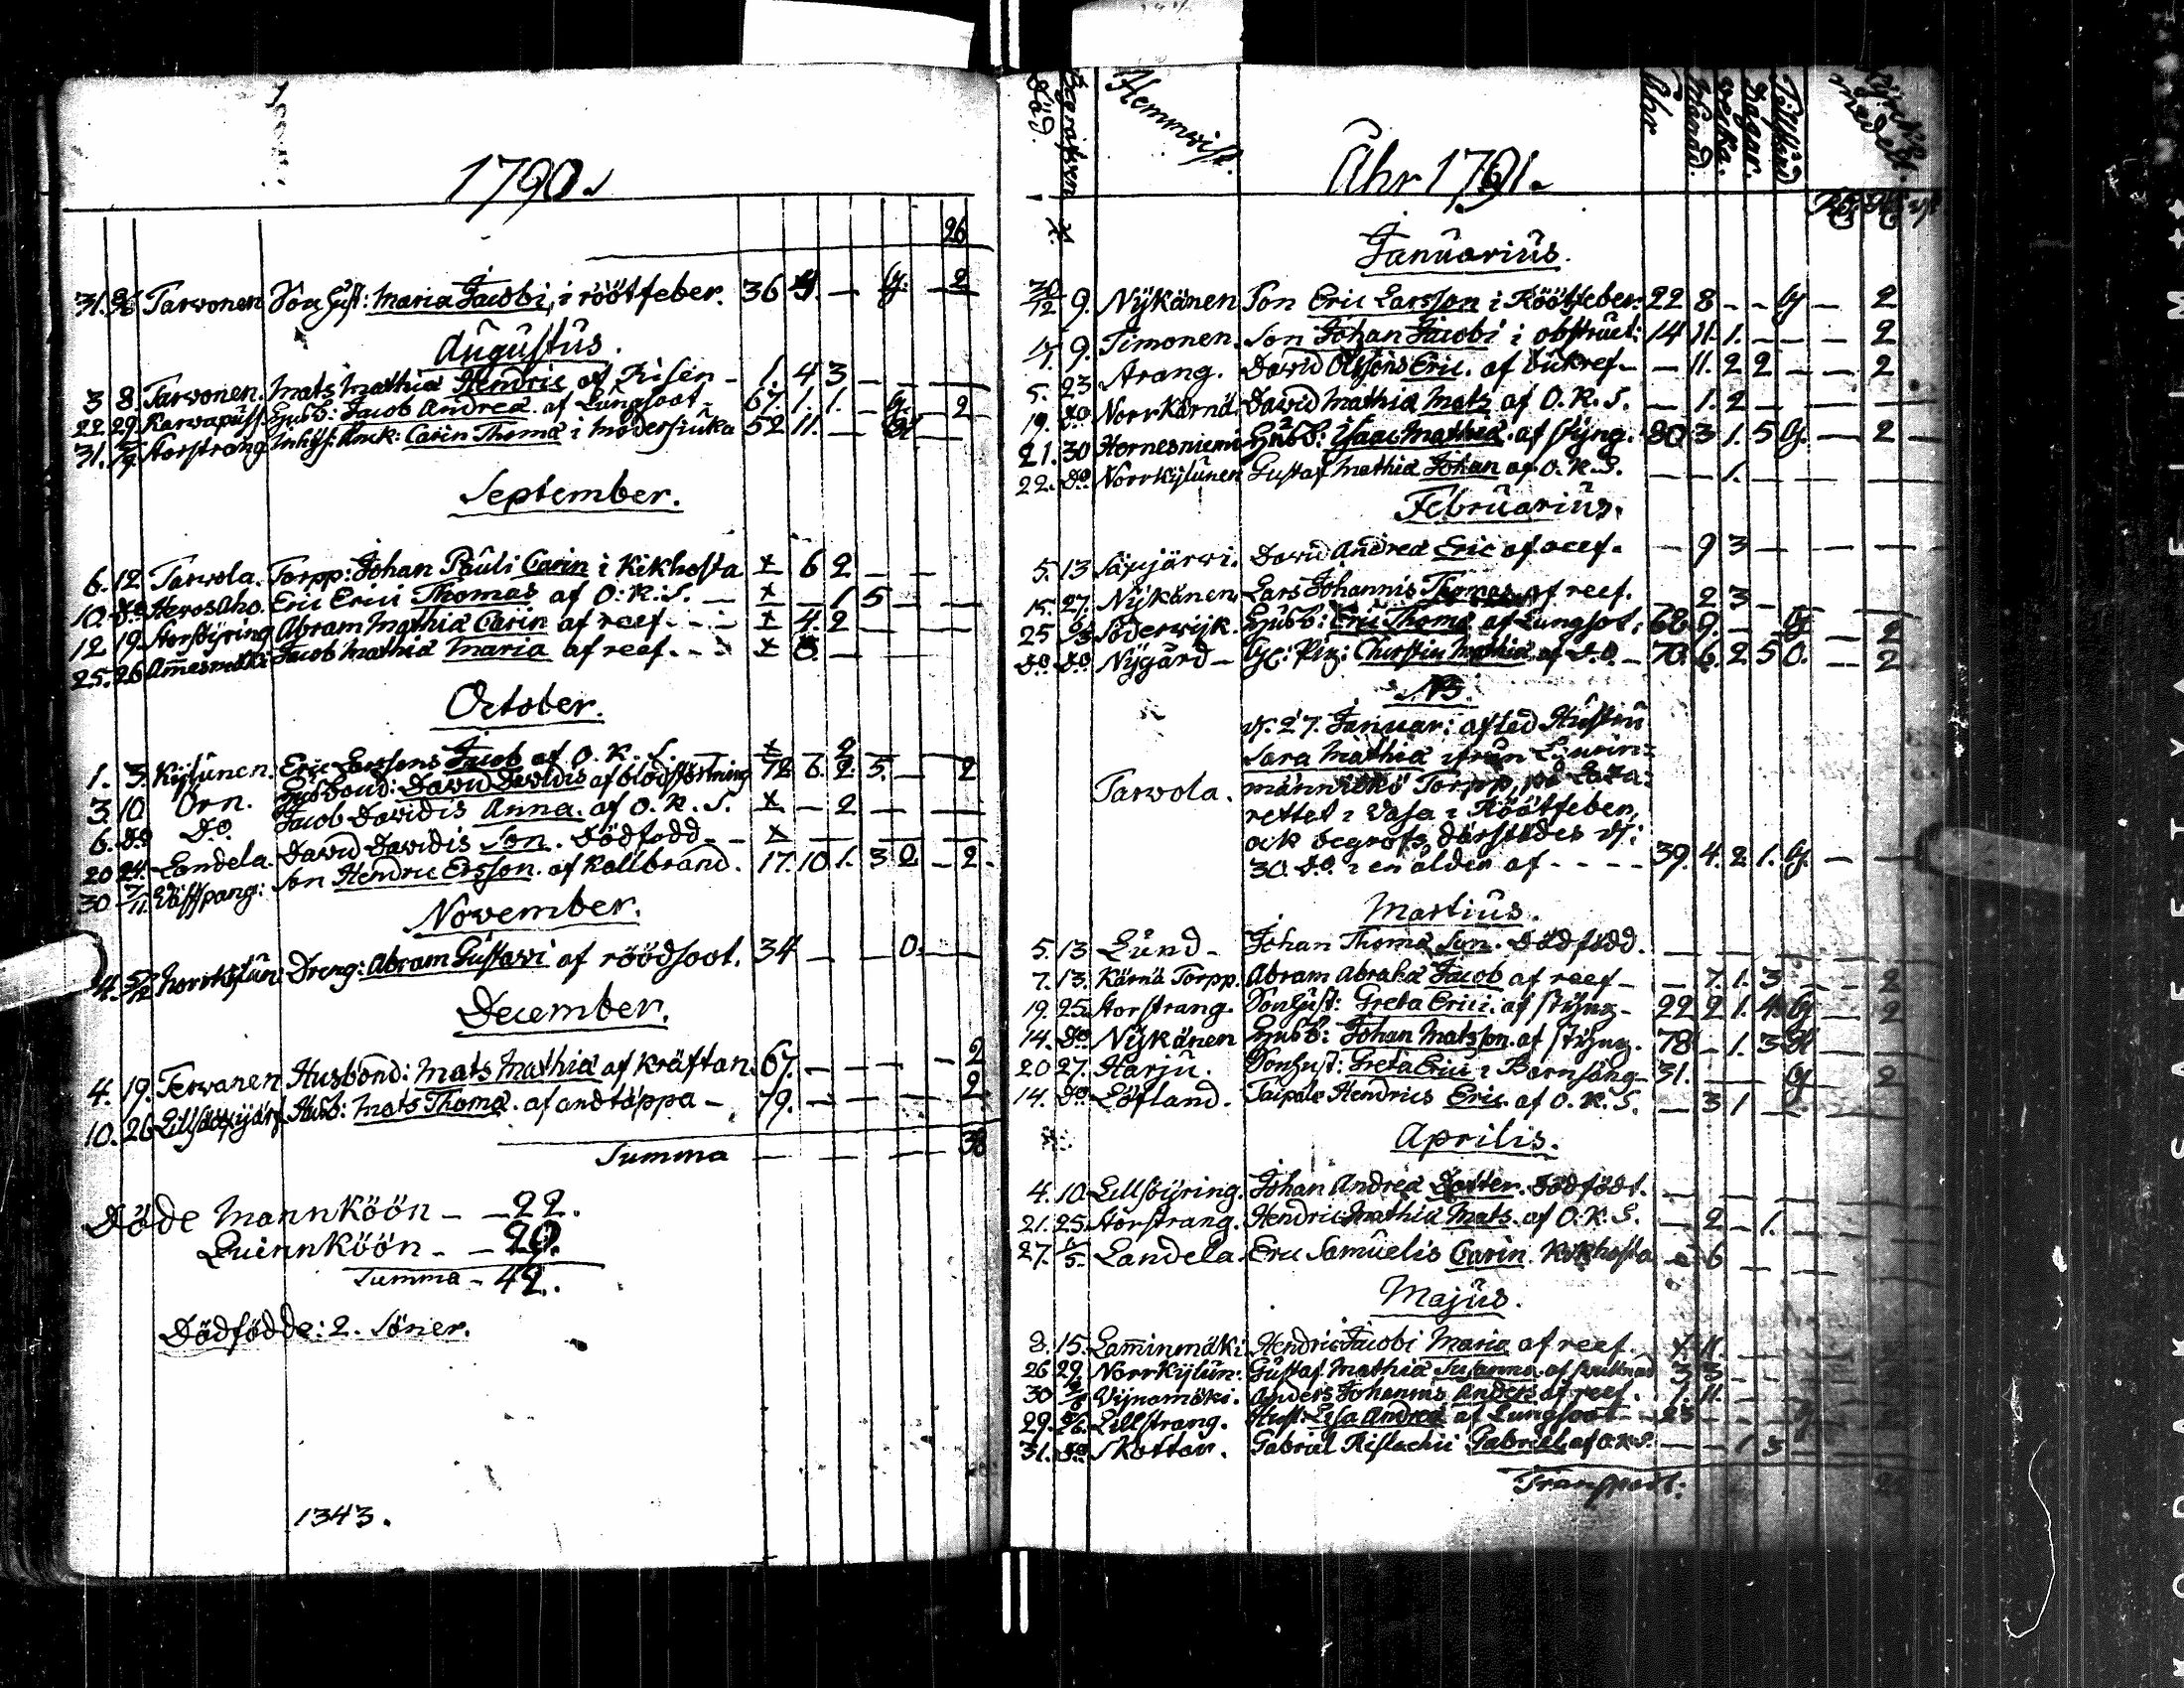 1790.
26
31. Tarvonen Son hust: Maria Jacobi, i röötfeber. 36 4. — G. — 2
Augustus.
3 8. Tarvonen. Mats Mathiæ Hendric af Risen — 1. 4 3 — —
22 29. Karvapuss. Husb: Jacob Andreæ af Lungsoot — 67. 1. 1. — G. — 2
31. Storstrang Inhys: Enck: Carin Thomæ i modersiuka 52 11. —
September.
6. 12 Tarvola. Torpp: Johan Pauli Carin i Kikhosta × 6 2 — —
10. do Hevosaho. Eric Erici Thomas af O. K. S. — × — 1 5 — —
12 19. Storsÿring Abram Mathiæ Carin af reef — × 4. 2 — —
25. 26 Ammesmäki Jacob Mathiæ Maria af reef. — × 8. —
October.
1. 3. Kÿlunen. Eric Larssons Jacob af O. K. S. — × — 2
3. 10 Örn. Husbond: Davids Davidis af blodstörtning 72 6. 2. 5. — 2
6. do Do. Jacob Davidis Anna. af O. K. S. × — 2 — —
20 24. Landela. David Davidis Son. Dödfödd — × — — —
30 7/11. Wästpang: Son Hendric Ersson. af Kallbrand. 17. 10 1. 3 O. — 2.
November.
4. 5/12 Norrkÿlun: Dreng: Abram Gustavi af röödsoot. 34 — — O. — —
December.
4. 19. Tervanen Husbond: Mats Mathiæ af Kräftan. 67. — — — — 2
10. 26 Lillsäxjärf Husb: Mats Thomæ. af andtäppa — 79. — — — 2
Summa — — — — 38
Döde Mannköön — — 22.
Quinnköön — — 20.
Summa — 42.
Dödfödde: 2. Söner.
1343.
Död. Begrafven Hemmvist. Åhr 1791. Åhr Månad. Vecka. Dagar. Tillstånd Kÿrckomedel.
Januarius.
30/12 9. Nÿkänen Son Eric Larsson i Röötfeber. 22 8 — — G — 2
1/1 9. Timonen. Son Johan Jacobi i obstruct: 14 11. 1. — — — 2
5. 23 Arang. David Olssons Eric. af bukref — — 11. 2 2 — — 2
19. do Norrkärnä. David Mathiæ Mats af O. K. S. — 1. 2 — — —
21. 30 Hernesniemi Husb: Isaac Mathiæ. af styng. 80 3 1. 5 G. — 2 —
22. do Norrkÿlunen Gustaf Mathiæ Johan af O. K. S. — — 1. — — —
Februarius.
5. 13 Säxjärvi. David Andreæ Eric af reef. — 9 3 — — —
15. 27. Nÿkänen. Lars Johannis Thomas af reef. — 2 3 — —
25 6/3 Söderwik. Husb: Eric Thomæ af Lungsot: 68 9. — G — 2
do do Nÿgård — Christin Mathiæ af do — 70. 6. 2 5 O. — 2
NB.
d. 27. Januar: afled Hustru
Sara Mathiæ ifrån
Tarvola. Torpp, på Laza-
rettet i Vasa i Röötfeber,
ock begrofs därstädes d:
30. do. i en ålder af — — — — 39. 4. 2 1. G. — —
Martius.
5. 13 Lund — Johan Thomæ Son. Dödfödd. — — — — —
7. 13. Kärnä Torpp. Abram Abrahæ Jacob af reef — — 7. 1. 3 — — 2
19. 25. Storstrang. Son hust: Greta Erici. af styng — 22 2 1. 4. G — 2
14. do Nÿkänen Husb: Johan Matsson. af styng. 78 — 1. 3
20 27. Harju. Son hust: Greta Erici i Barnsäng — 31. — — G — 2
14. do Löfland. Taipale Hendrics Eric af O. K. S. — 3 1 —
Aprilis.
4. 10 Lillsÿring. Johan Andreæ Dotter. Dödfödt. — — —
21. 25. Storstrang. Hendric Mathiæ Mats. af O. K. S. — 2 — 1.
27. 1/5. Landela. Eric Samuelis Carin. Kikhosta — 6
Majus.
8. 15. Lamminmäki. Hendric Jacobi Maria af reef.
26 29. Norrkÿlun: Gustaf Mathiæ Susanna 3 3
30 Vÿnamäki. Anders Johannis Anders af reef. 1. 11.
29. 5/6. Lillstrang. Hust: Lisa Andreæ af Lungsoot — 23
31. do Skottar. Gabriel Gabriel af O. K. S. — — 1 5
Transport: